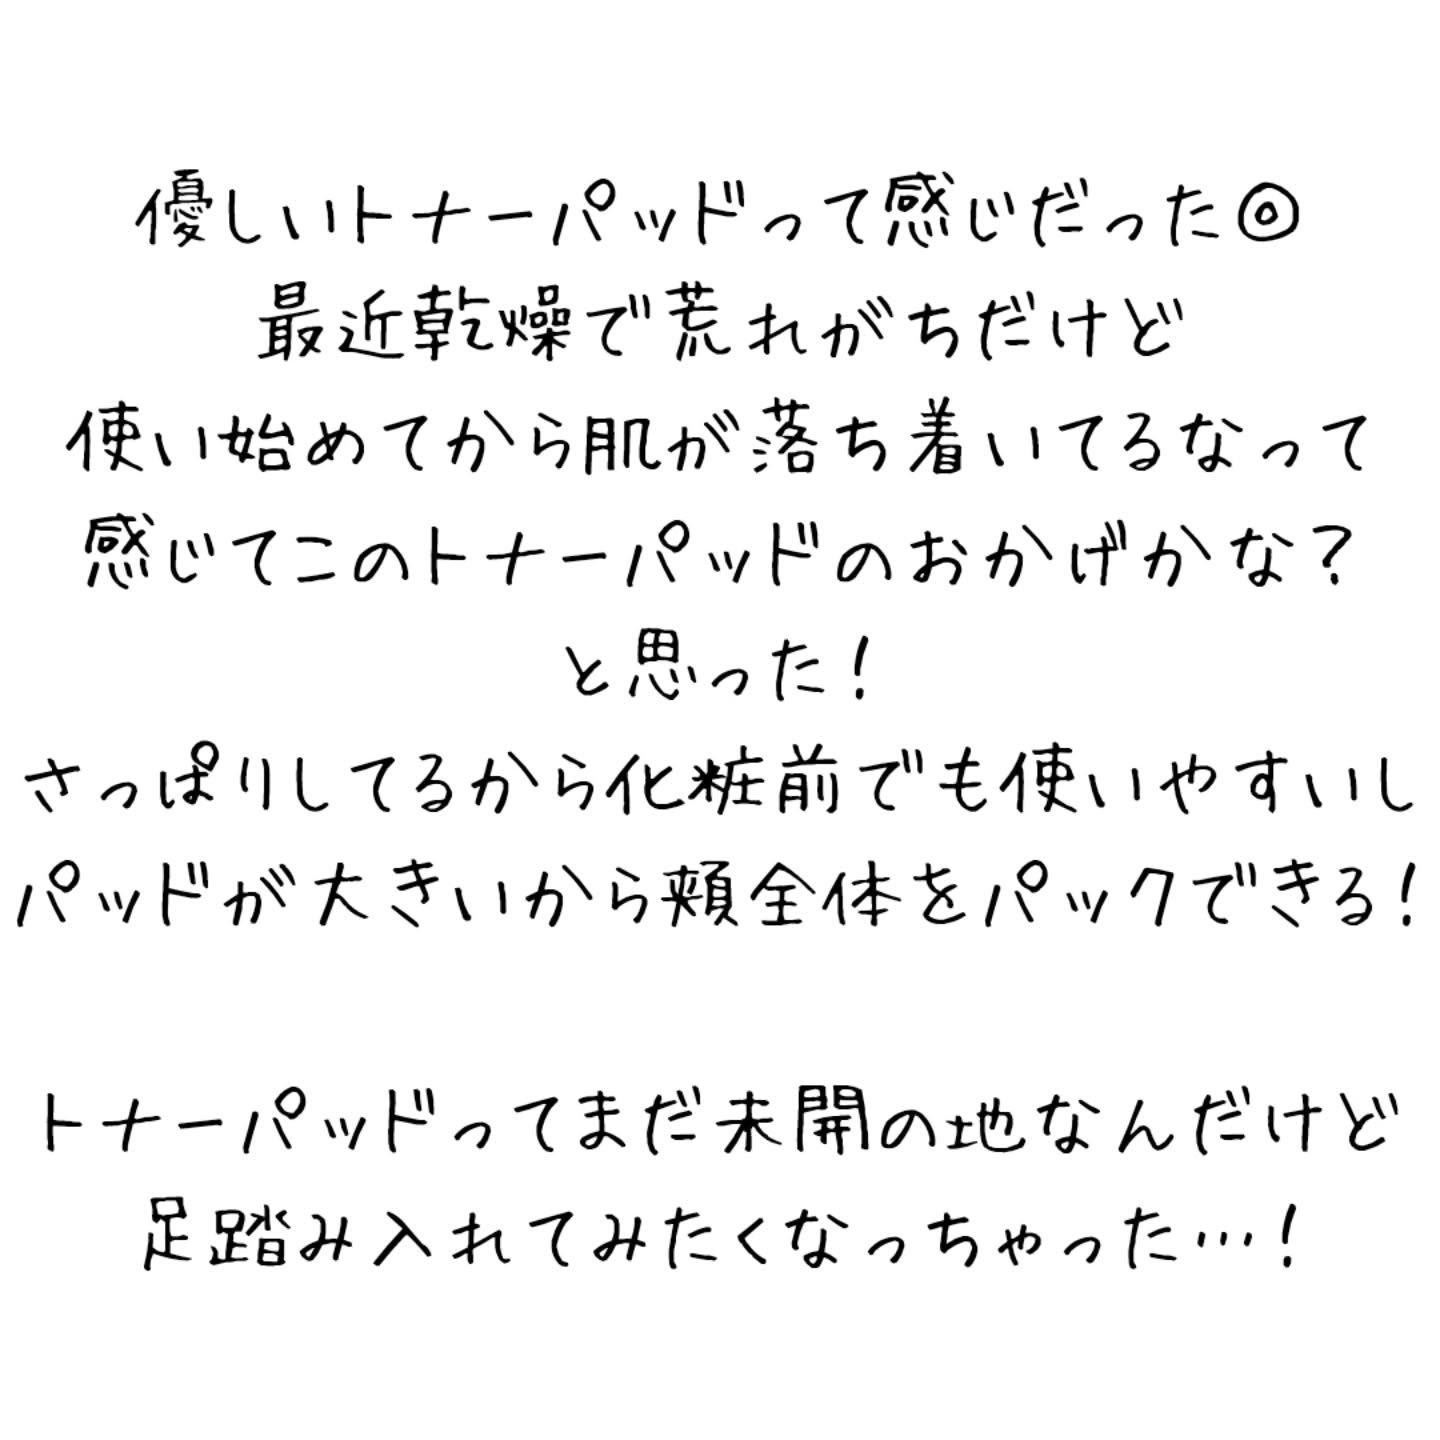 優しいトナーパッドって感じだった◎
最近乾燥で荒れがちだけど
使い始めてから肌が落ち着いてるなって
感じてこのトナーパッドのおかげかな?
と思った!
さっぱりしてるから化粧前でも使いやすいし
パッドが大きいから頬全体をパックできる!
トナーパッドってまだ未開の地なんだけど
足踏み入れてみたくなっちゃった…!